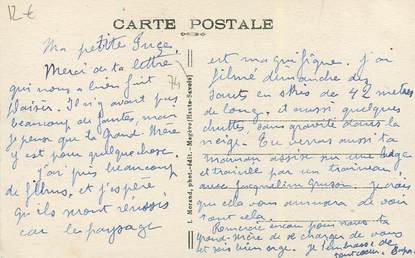 12 €
CARTE POSTALE
Ma petite Puce,
Merci de ta lettre
qui nous a bien fait
plaisir. Il n'y avait pas
beaucoup de fautes, mais
je pense que la Grand-Mère
y est pour quelque chose.
J'ai pris beaucoup
de films, et j'espère
qu'ils seront réussis
car le paysage
74
I. Morand, phot.-édit. - Megève (Haute-Savoie)
est magnifique. J'ai
filmé dimanche des
sauts en skis de 42 mètres
de long, et aussi quelques
chutes, sans gravité dans la
neige. Tu verras aussi ta
maman assise sur une luge
et trainée par un traineau,
avec Jacqueline. Je crois
que cela vous amusera de voir
tout cela.
Remercie encore pour nous ta
Grand-Mère de se charger de vous
et sois bien sage. Je t'embrasse de
tout cœur. Papa.